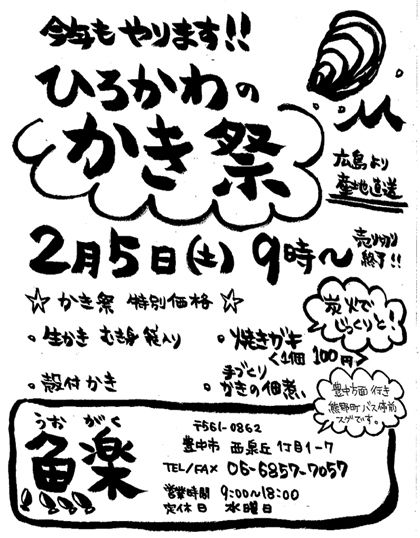 今年もやります!!
ひろかわの
かき祭
広島より
産地直送
2月5日(土) 9時〜
売り切り
終了!!
☆ かき祭 特別価格 ☆
・生かき むき身 袋入り
・焼きガキ
<1個 100円>
炭火で
じっくりと!
・殻付かき
・手づくり
かきの佃煮
豊中方面行き
熊野町バス停前
スグです。
うおがく
魚楽
〒561-0862
豊中市 西泉丘1丁目1-7
TEL/FAX 06-6857-7057
営業時間 9:00〜18:00
定休日 水曜日